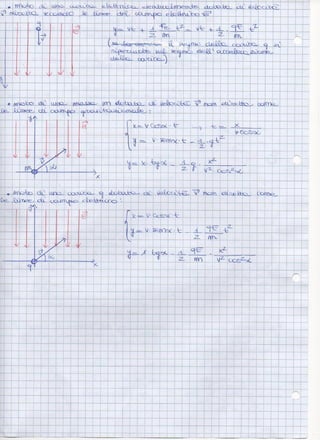 • moto di una carica elettrica inizialmente dotata di velocità
v⃗ diretta secondo le linee del campo elettrico E⃗
y = vt + 1/2 Fe/m t² = vt + 1/2 qE/m t²
il segno della carica q si
ripercuote sul segno dell'accelerazione
della carica)
• moto di una massa m dotata di velocità v⃗ non diretta come
le linee di campo gravitazionale:
y
x = v cosα · t → t = x / v cosα
y = v senα · t - 1/2 g t²
y = x tgα - 1/2 g x² / v² cos²α
m
α
x
• moto di una carica q dotata di velocità v⃗ non diretta come
le linee di campo elettrico:
y
x = v cosα t
y = v senα t - 1/2 qE/m t²
y = x tgα - 1/2 qE/m · x² / v² cos²α
q
α
x